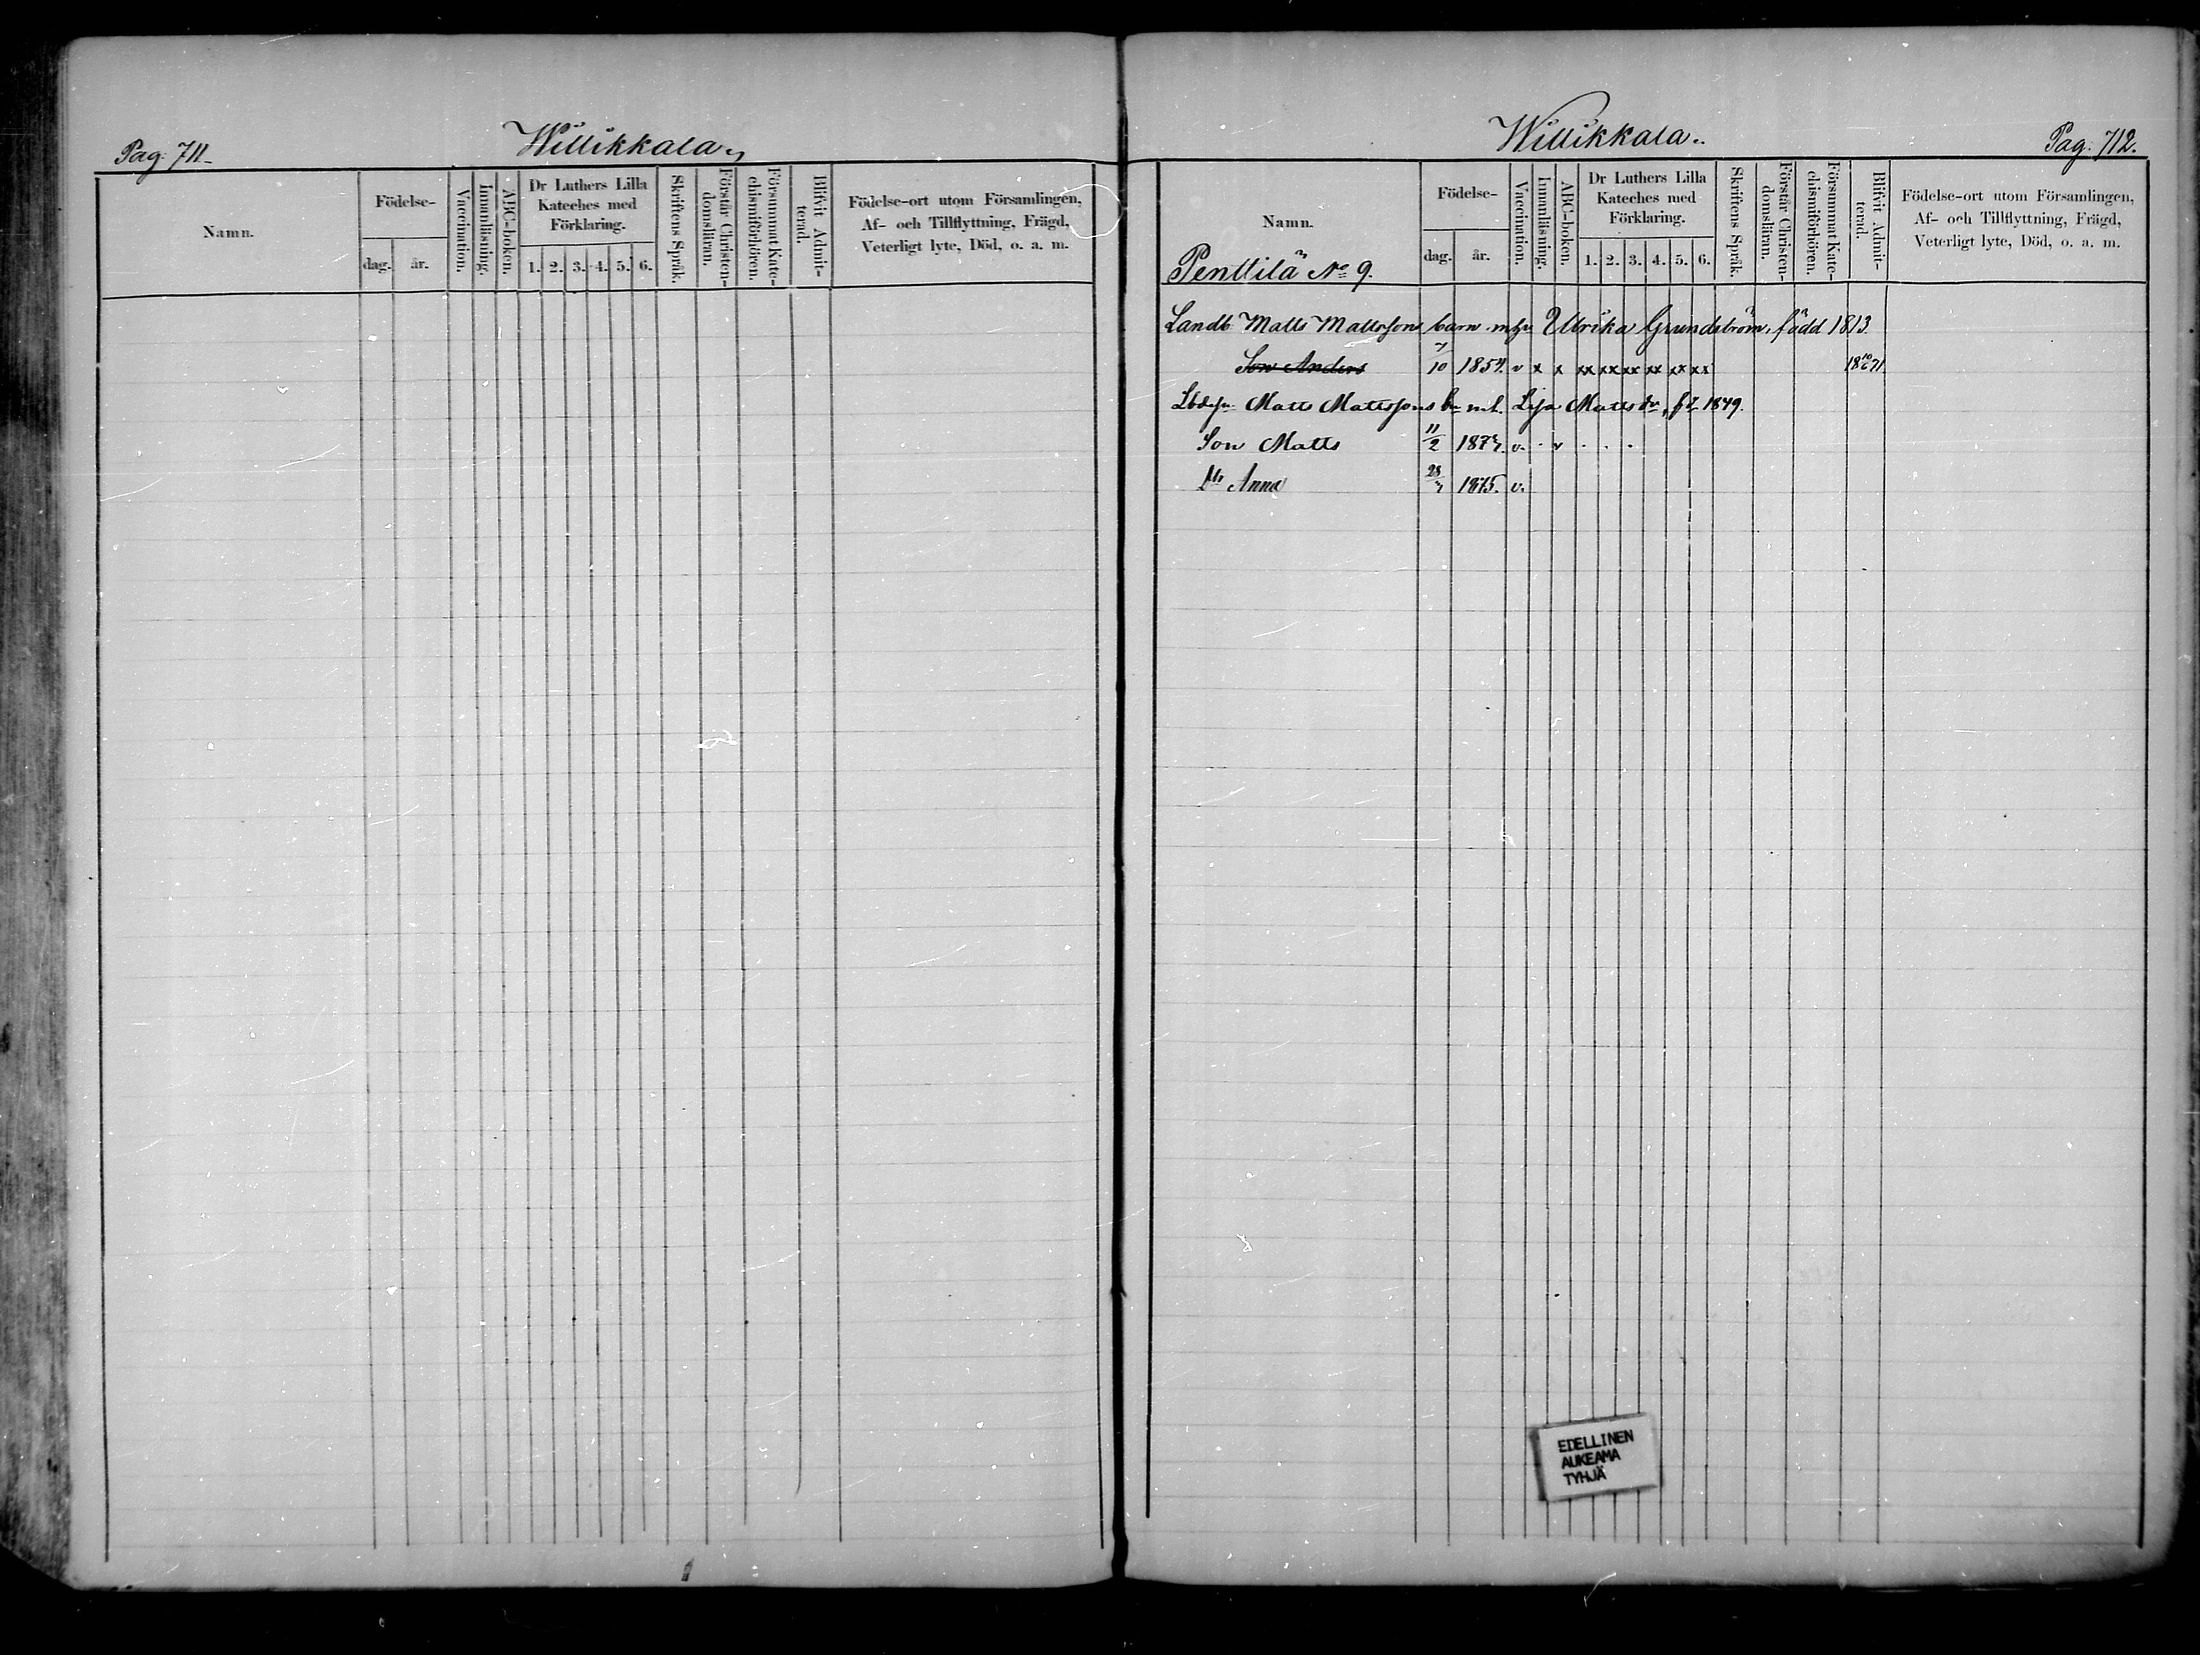 Pag. 711.
Willikkala.
Namn.
Födelse-
dag. år.
Vaccination.
Innanläsning.
ABC-boken.
Dr Luthers Lilla
Kateches med
Förklaring.
1. 2. 3. 4. 5. 6.
Skriftens Språk.
Förstår Christen-
domsläran.
Försummat Kate-
chismiförhören.
Blifvit Admit-
terad.
Födelse-ort utom Församlingen,
Af- och Tillflyttning, Frägd,
Veterligt lyte, Död, o. a. m.
Willikkala.
Pag. 712.
Namn.
Penttilä No 9.
Födelse-
dag. år.
Vaccination.
Innanläsning.
ABC-boken.
Dr Luthers Lilla
Kateches med
Förklaring.
1. 2. 3. 4. 5. 6.
Skriftens Språk.
Förstår Christen-
domsläran.
Försummat Kate-
chismiförhören.
Blifvit Admit-
terad.
Födelse-ort utom Församlingen,
Af- och Tillflyttning, Frägd,
Veterligt lyte, Död, o. a. m.
Landb. Matts Mattsson barn m. Ulrika Grundström, född 1813.
Son Anders 7/10 1854. v x x xx xx xx xx xx xx 18 10/6 71
Matts Mattssons bn m. h. Lisa Mattsdr, fd 1849.
Son Matts 11/2 1874. v.
Dr Anna 1875. v.
EDELLINEN
AUKEAMA
TYHJÄ